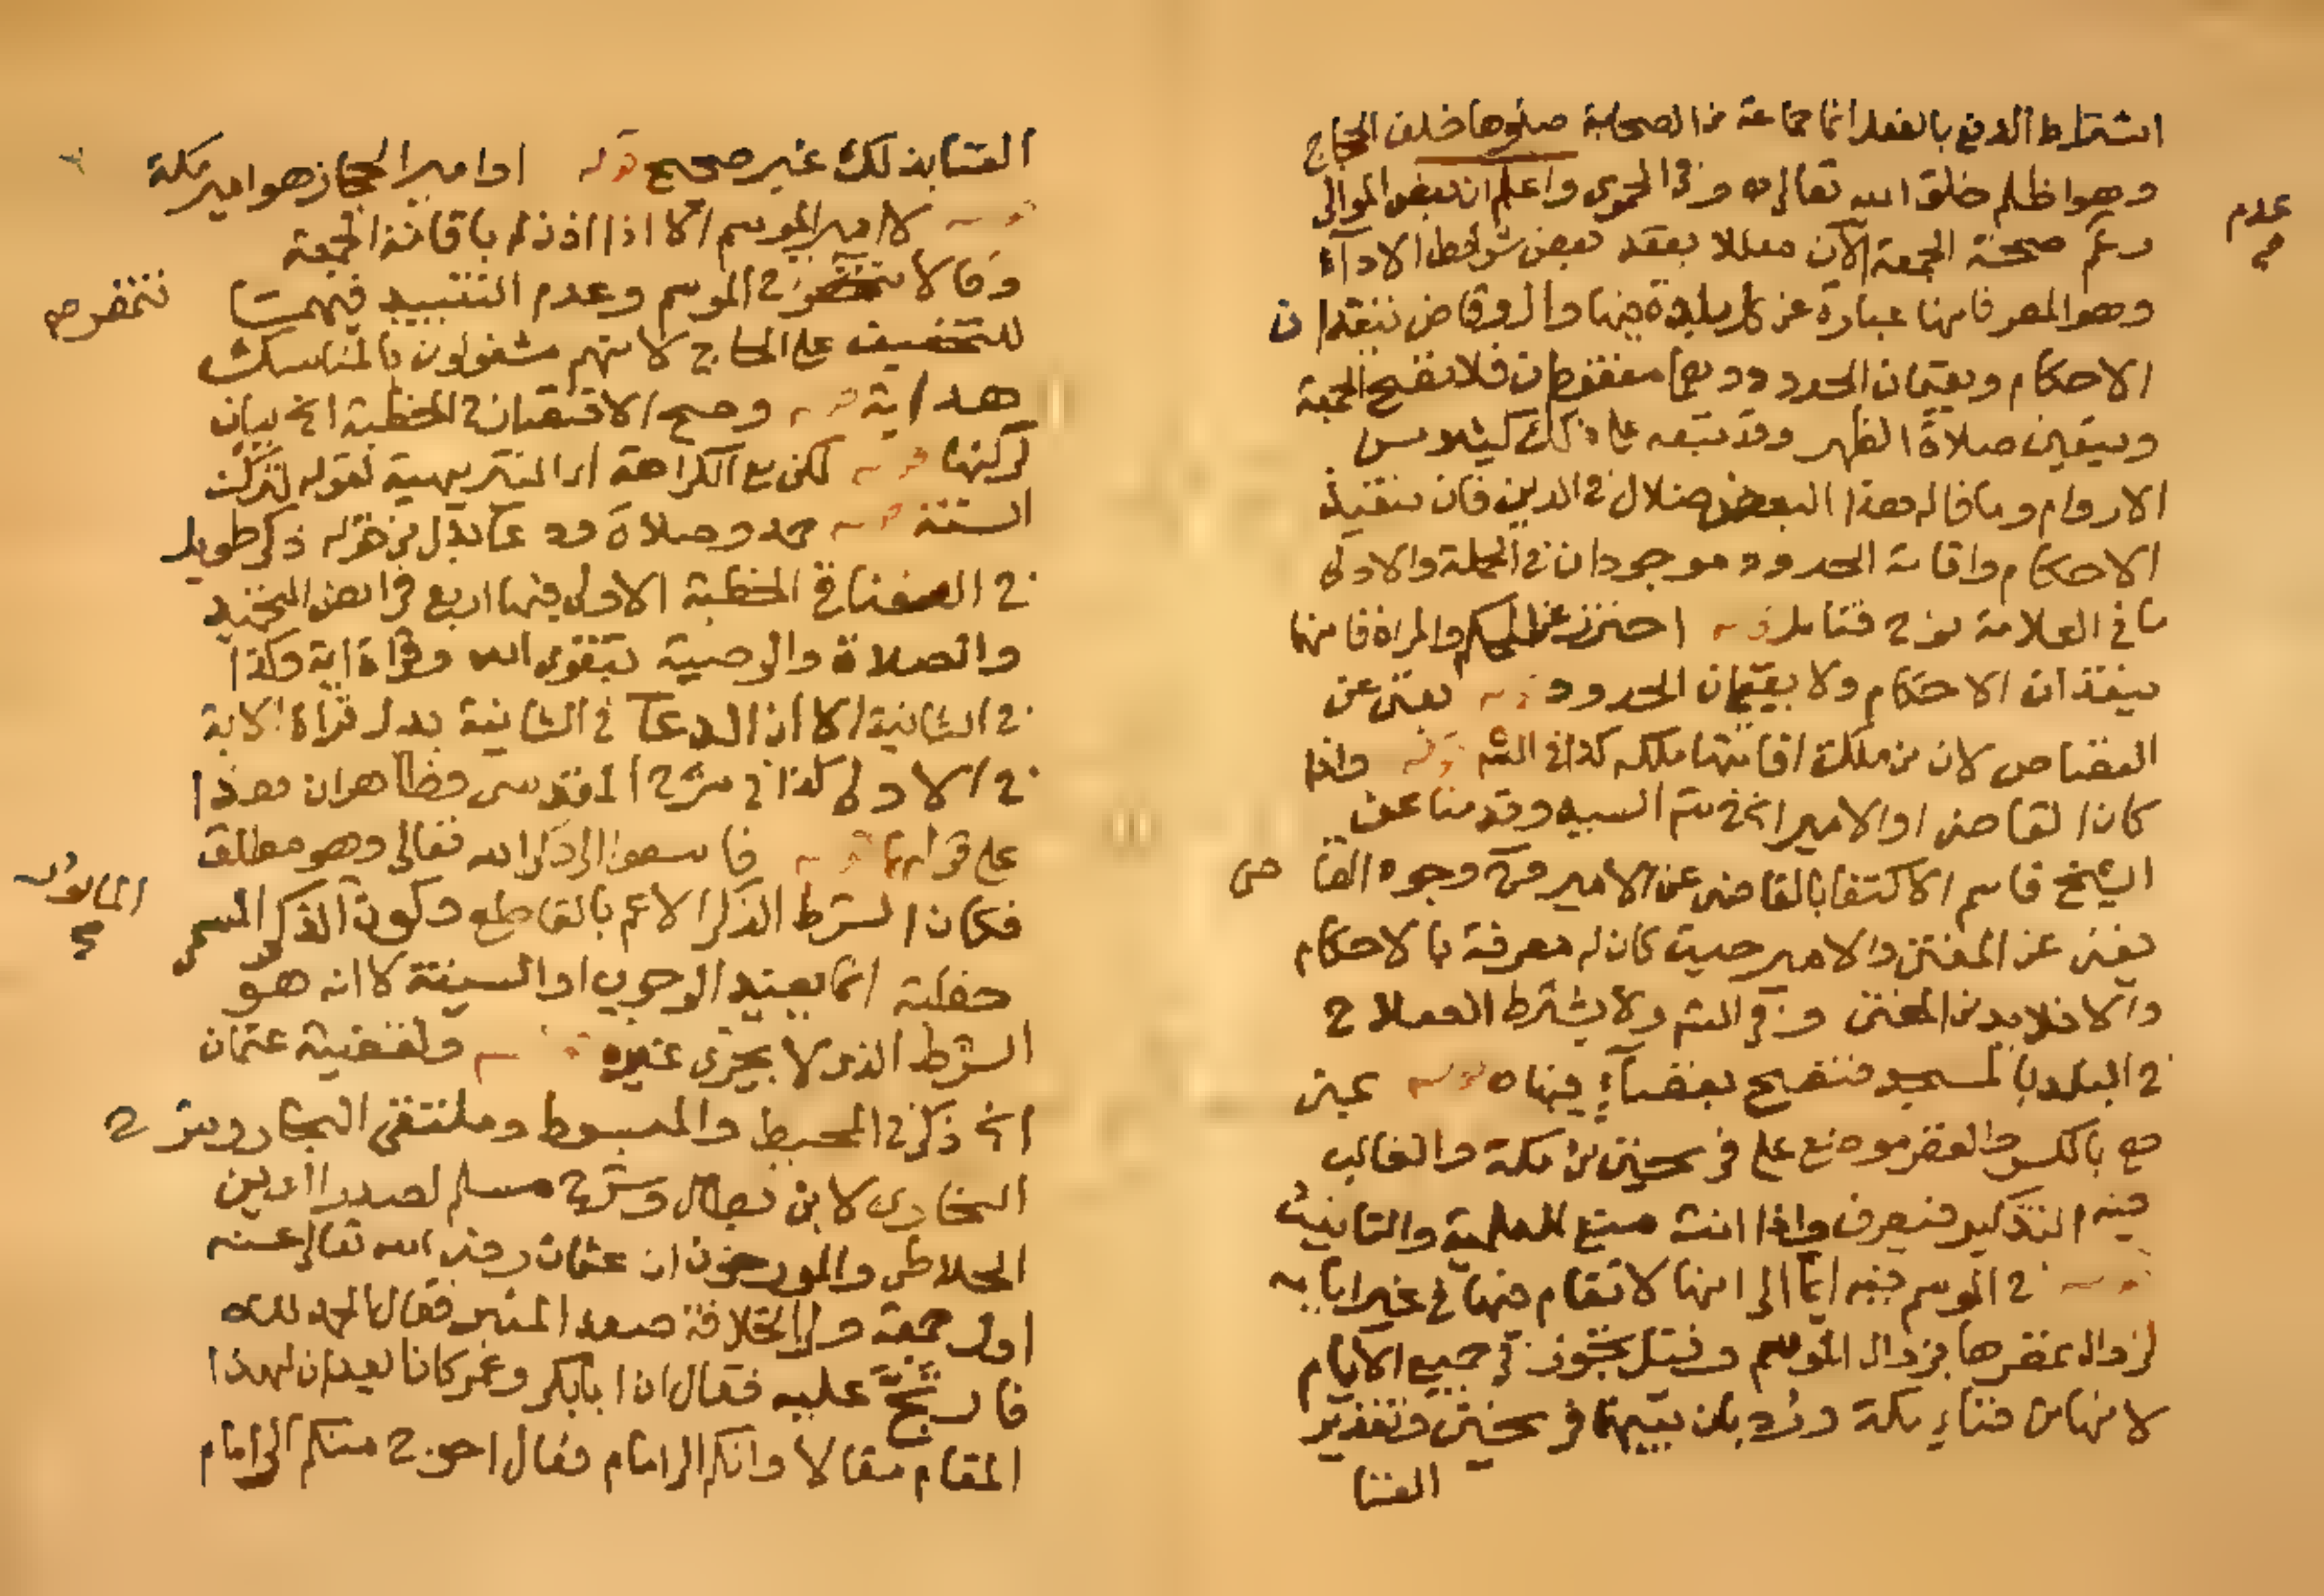 اشتراط الدفع بالفعل انما جماعة من الصحابة صلوها خلف الحجاج
وهو اظلم خلق الله تعالى ه وفي الحموى واعلم ان بعض الموالى
عدم
صح
زعم صحة الجمعة الآن معللا بفقد بعض شرائط الاداء
وهو المصر فانها عبارة عن كل بلدة فيها وال وقاض ينفذان
الاحكام ويقيمان الحدود وهما مفقودان فلا تصح الجمعة
ويتعين صلاة الظهر وقد تبعه على ذلك كثير من
الاروام وما قاله هذا البعض ضلال في الدين فان تنفيذ
الاحكام واقامة الحدود موجودان في الجملة والاولى
ما في العلامة نوح فتامل قوله احترز عن المحكم والمراة فانهما
ينفذان الاحكام ولا يقيمان الحدود قوله يغنى عن
القصاص لان من ملك اقامتها ملكه كذا في الشر قوله واذا
كان القاضى او الامير الخ في تتم السيد وقدمنا عن
الشيخ قاسم الاكتفا بالقاضى عن الامير وجوه القاضى
يغنى عن المفتى والامير حيث كان له معرفة بالاحكام
والا فلا بد من المفتى وفي الشر ولا يشترط الصلاح
في البلد بالمسجد فتصح بفضاء فيها ه قوله بمنى
مع بالكسر والقصر موضع على فرسخين من مكة والغالب
فيه التذكير فيصرف واذا انث منع للعلمية والتانيث
قوله في الموسم فيه ايما الى انها لا تقام فيها في غير ايامه
لزوال تمصرها بزوال الموسم وقيل تجوز في جميع الايام
لانها من فناء مكة ورد بان بينهما فرسخين وتقدير
الفنا
الفنا بذلك غير صحيح قوله او امير الحجاز هو امير مكة
قوله لا امير الموسم الا اذا اذن له باقامة الجمعة
وقالا تتمصر في الموسم وعدم التقييد فيهما
تتمصر صح
للتخفيف على الحاج لانهم مشغولون بالمناسك
هداية قوله وصح الاقتصار في الخطبة الخ بيان
لركنها قوله لكن مع الكراهة اى التنزيهية لقوله لترك
السنة قوله حمد وصلاة ود عا بدل من قوله ذكر طويل
في الصغناقى الخطبة الاولى فيها اربع فرايض التحميد
والصلاة والوصية بتقوى الله وقراة اية وكذا
في الثانية الا ان الدعا في الثانية بدل قراة الاية
في الاولى كذا في شرح المقدسى وظاهر ان هذا
على قولهما قوله فاسعوا الى ذكر الله تعالى وهو مطلق
فكان الشرط الذكر الاعم بالقاطع وكون الذكر المسمى
الماثور
صح
خطبة انما يفيد الوجوب او السنة لا انه هو
الشرط الذى لا يجزى غيره قوله ولقضية عثمان
الخ ذكر في المحيط والمبسوط وملتقى البحار وشرح
البخارى لابن بطال وشرح مسلم لصدر الدين
الخلاطى والمورخون ان عثمان رضى الله تعالى عنه
اول جمعة ولى الخلافة صعد المنبر فقال الحمد لله
فارتج عليه فقال ان ابابكر وعمر كانا يعدان لهذا
المقام مقالا وانكم الى امام فعال احوج منكم الى امام